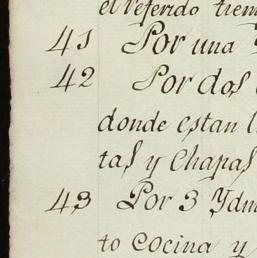 el referido tiem
41 Por una
42 Por dos
donde estan l
tas y Chapas
43 Por 3 Ydm
to Cocina y